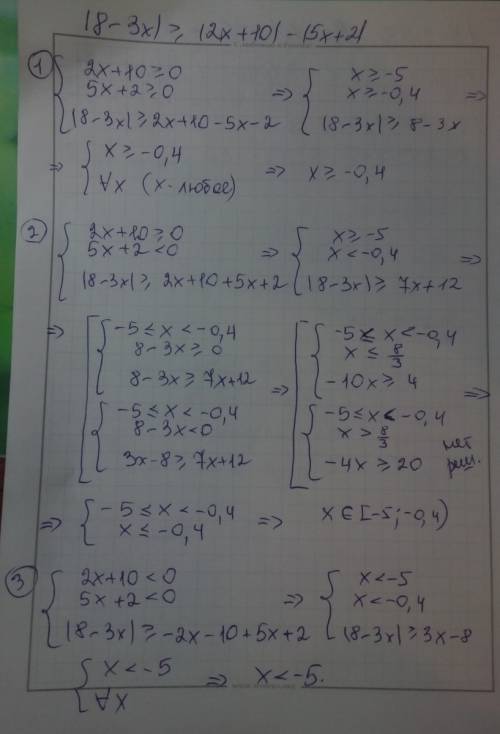 |8-3x| ≥ |2x+10| - |5x+2|
① { 2x+10≥0 ; 5x+2≥0 ; |8-3x| ≥ 2x+10-5x-2 => { x≥-5 ; x≥-0,4 ; |8-3x| ≥ 8-3x =>
=> { x≥-0,4 ; ∀x (x-любое) => x≥-0,4
② { 2x+10≥0 ; 5x+2<0 ; |8-3x| ≥ 2x+10+5x+2 => { x≥-5 ; x<-0,4 ; |8-3x| ≥ 7x+12 =>
=> [ { -5≤x<-0,4 ; 8-3x≥0 ; 8-3x≥7x+12 => [ { -5≤x<-0,4 ; x≤8/3 ; -10x≥4
{ -5≤x<-0,4 ; 8-3x<0 ; 3x-8≥7x+12 { -5≤x<-0,4 ; x>8/3 ; -4x≥20 нет реш. =>
=> { -5≤x<-0,4 ; x≤-0,4 => x∈[-5;-0,4)
③ { 2x+10<0 ; 5x+2<0 ; |8-3x| ≥ -2x-10+5x+2 => { x<-5 ; x<-0,4 ; |8-3x| ≥ 3x-8
{ x<-5 ; x∀ => x<-5.